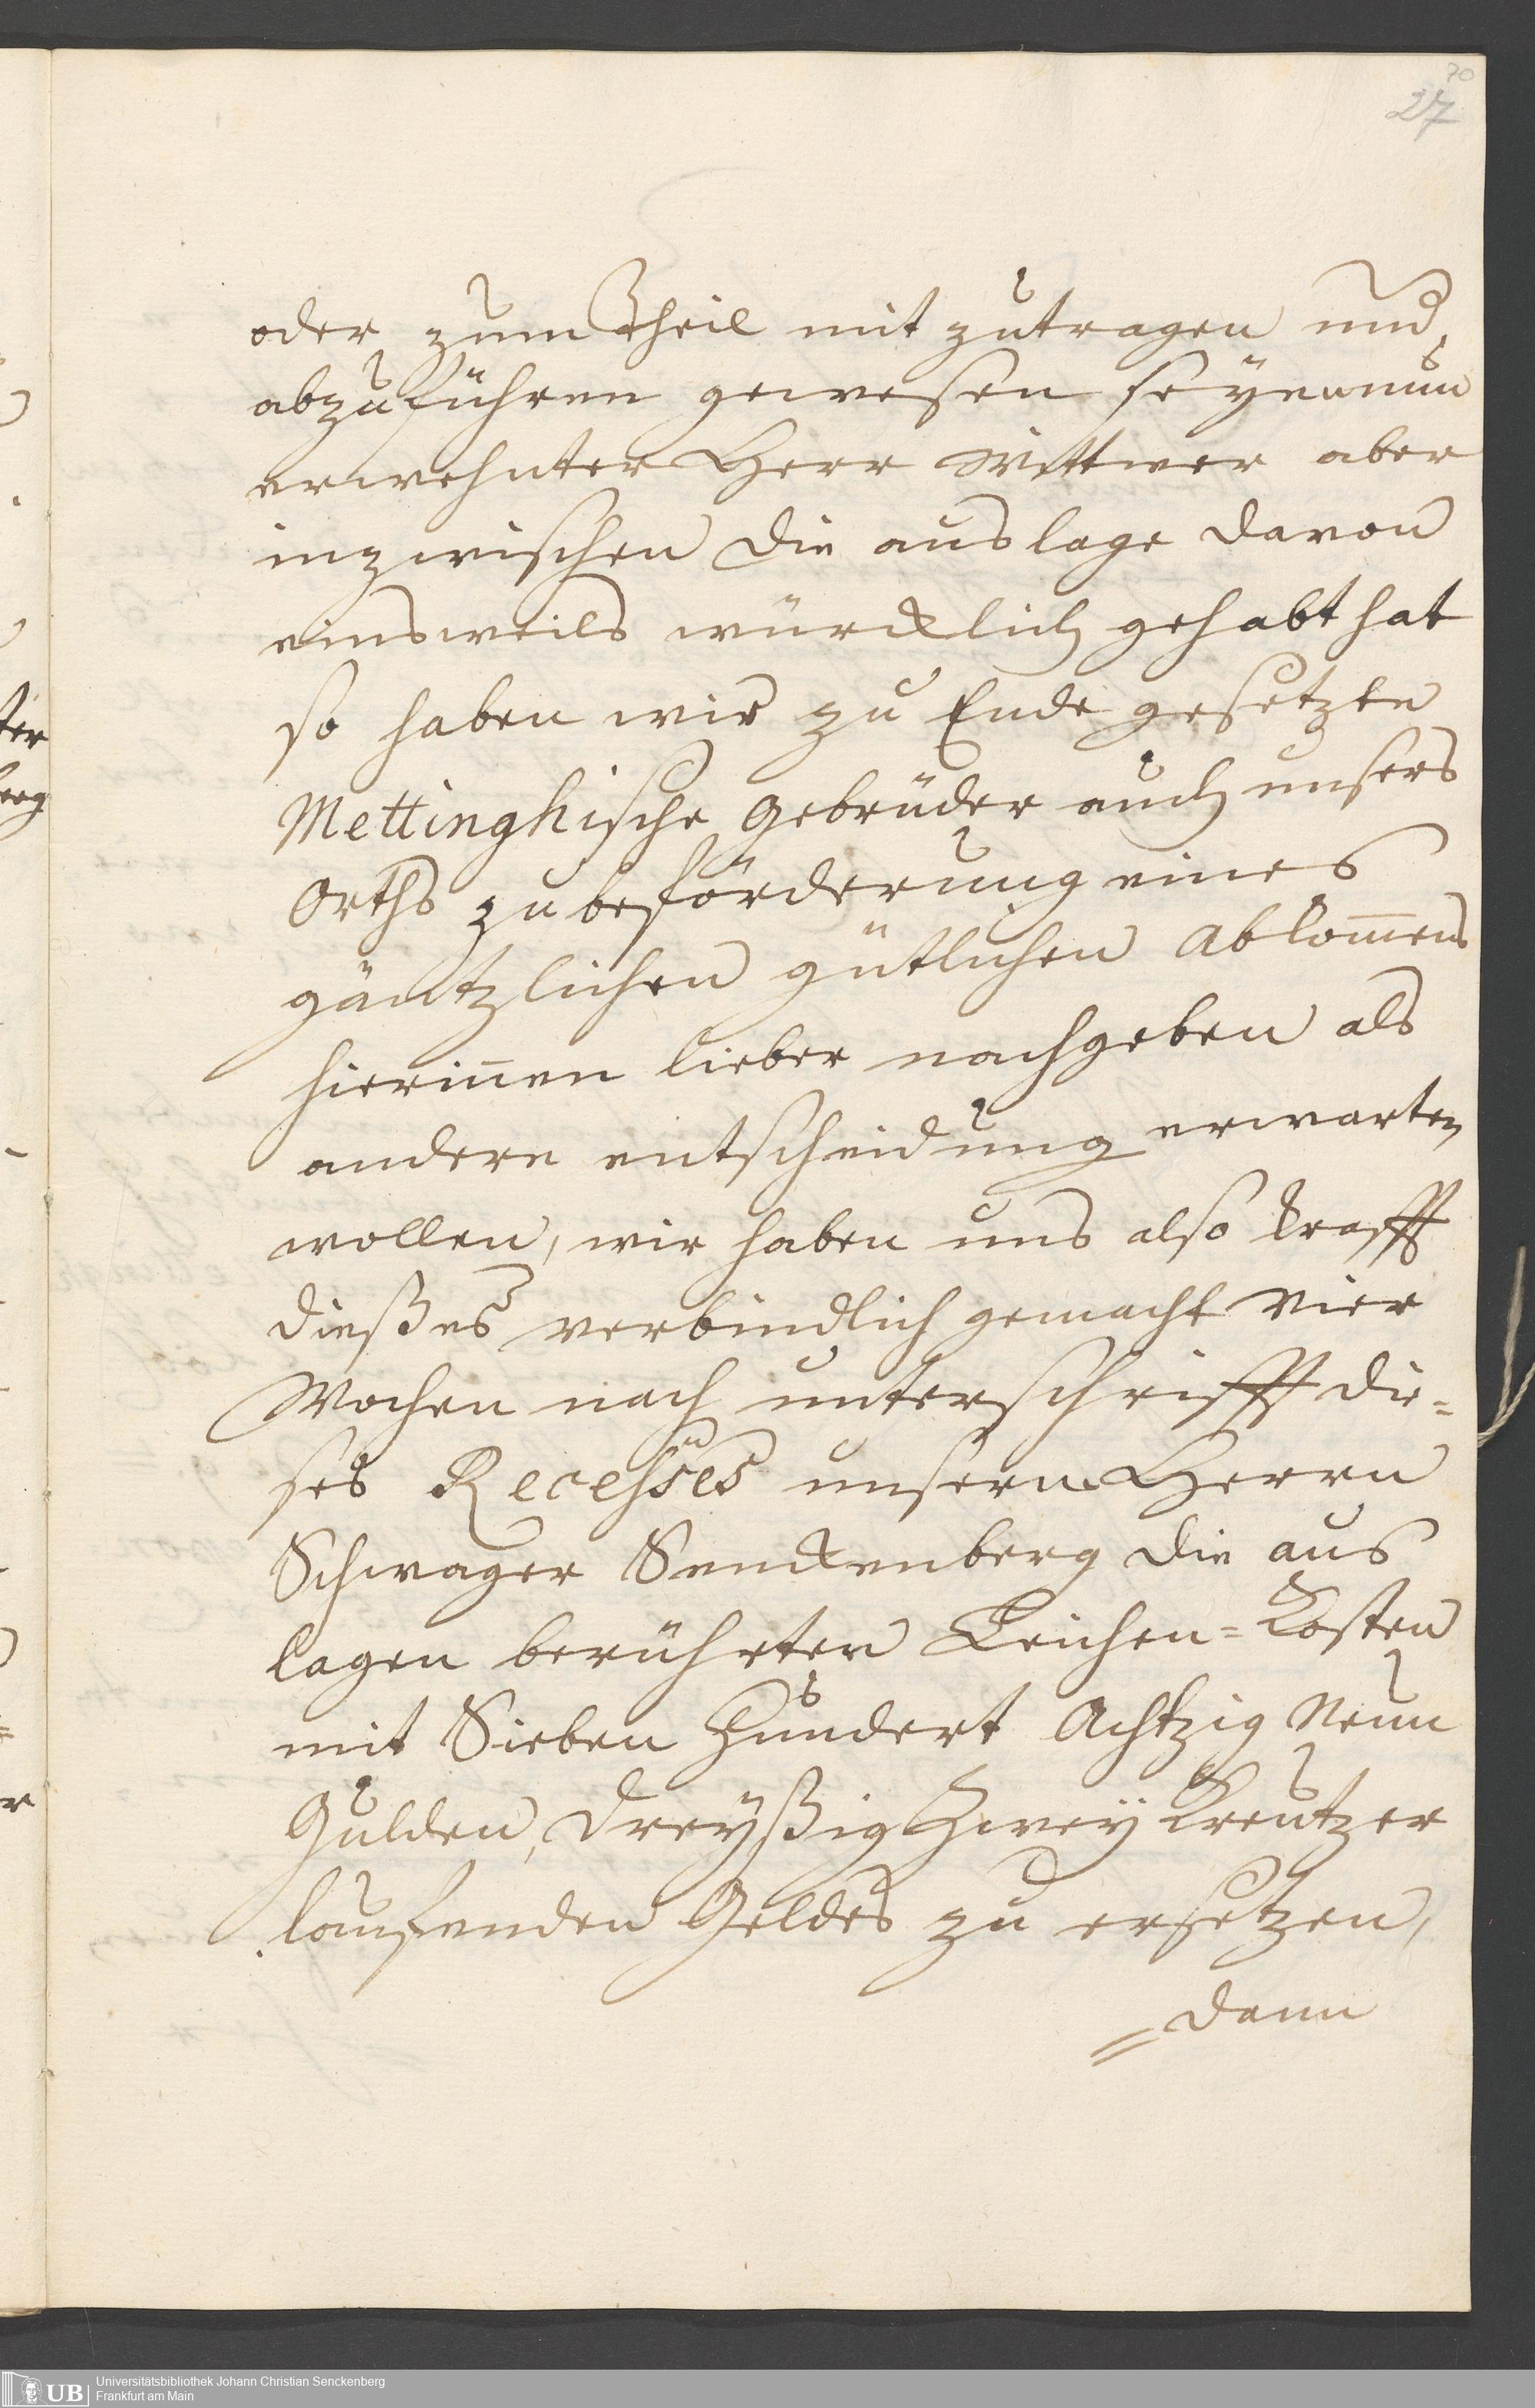 70
27
oder zum Theil mit zutragen und
abzuführen gewesen seÿe, nun
erwehnter Herr Wittwer aber
inzwischen die auslage davon
einsweils würcklich gehabt hat
so haben wir zu Ende gesetzte
Mettinghische Gebrüder auch unsers
Orths zu beförderung eines
gäntzlichen gütlichen Abkom̅ens
hierin̅en lieber nachgeben als
andere entscheidung erwarten
wollen, wir haben uns also krafft
dießes verbindlich gemacht vier
Wochen nach unterschrifft die=
ses Recesses unserm Herrn
Schwager Senckenberg die aus
lagen berührter Leichen=Kosten
mit Sieben Hundert Achtzig Neun
Gulden, dreÿßig Zweÿ Kreutzer
laufenden Geldes zu ersetzen,
= dann
ter
erg
UB
Universitätsbibliothek Johann Christian Senckenberg
Frankfurt am Main